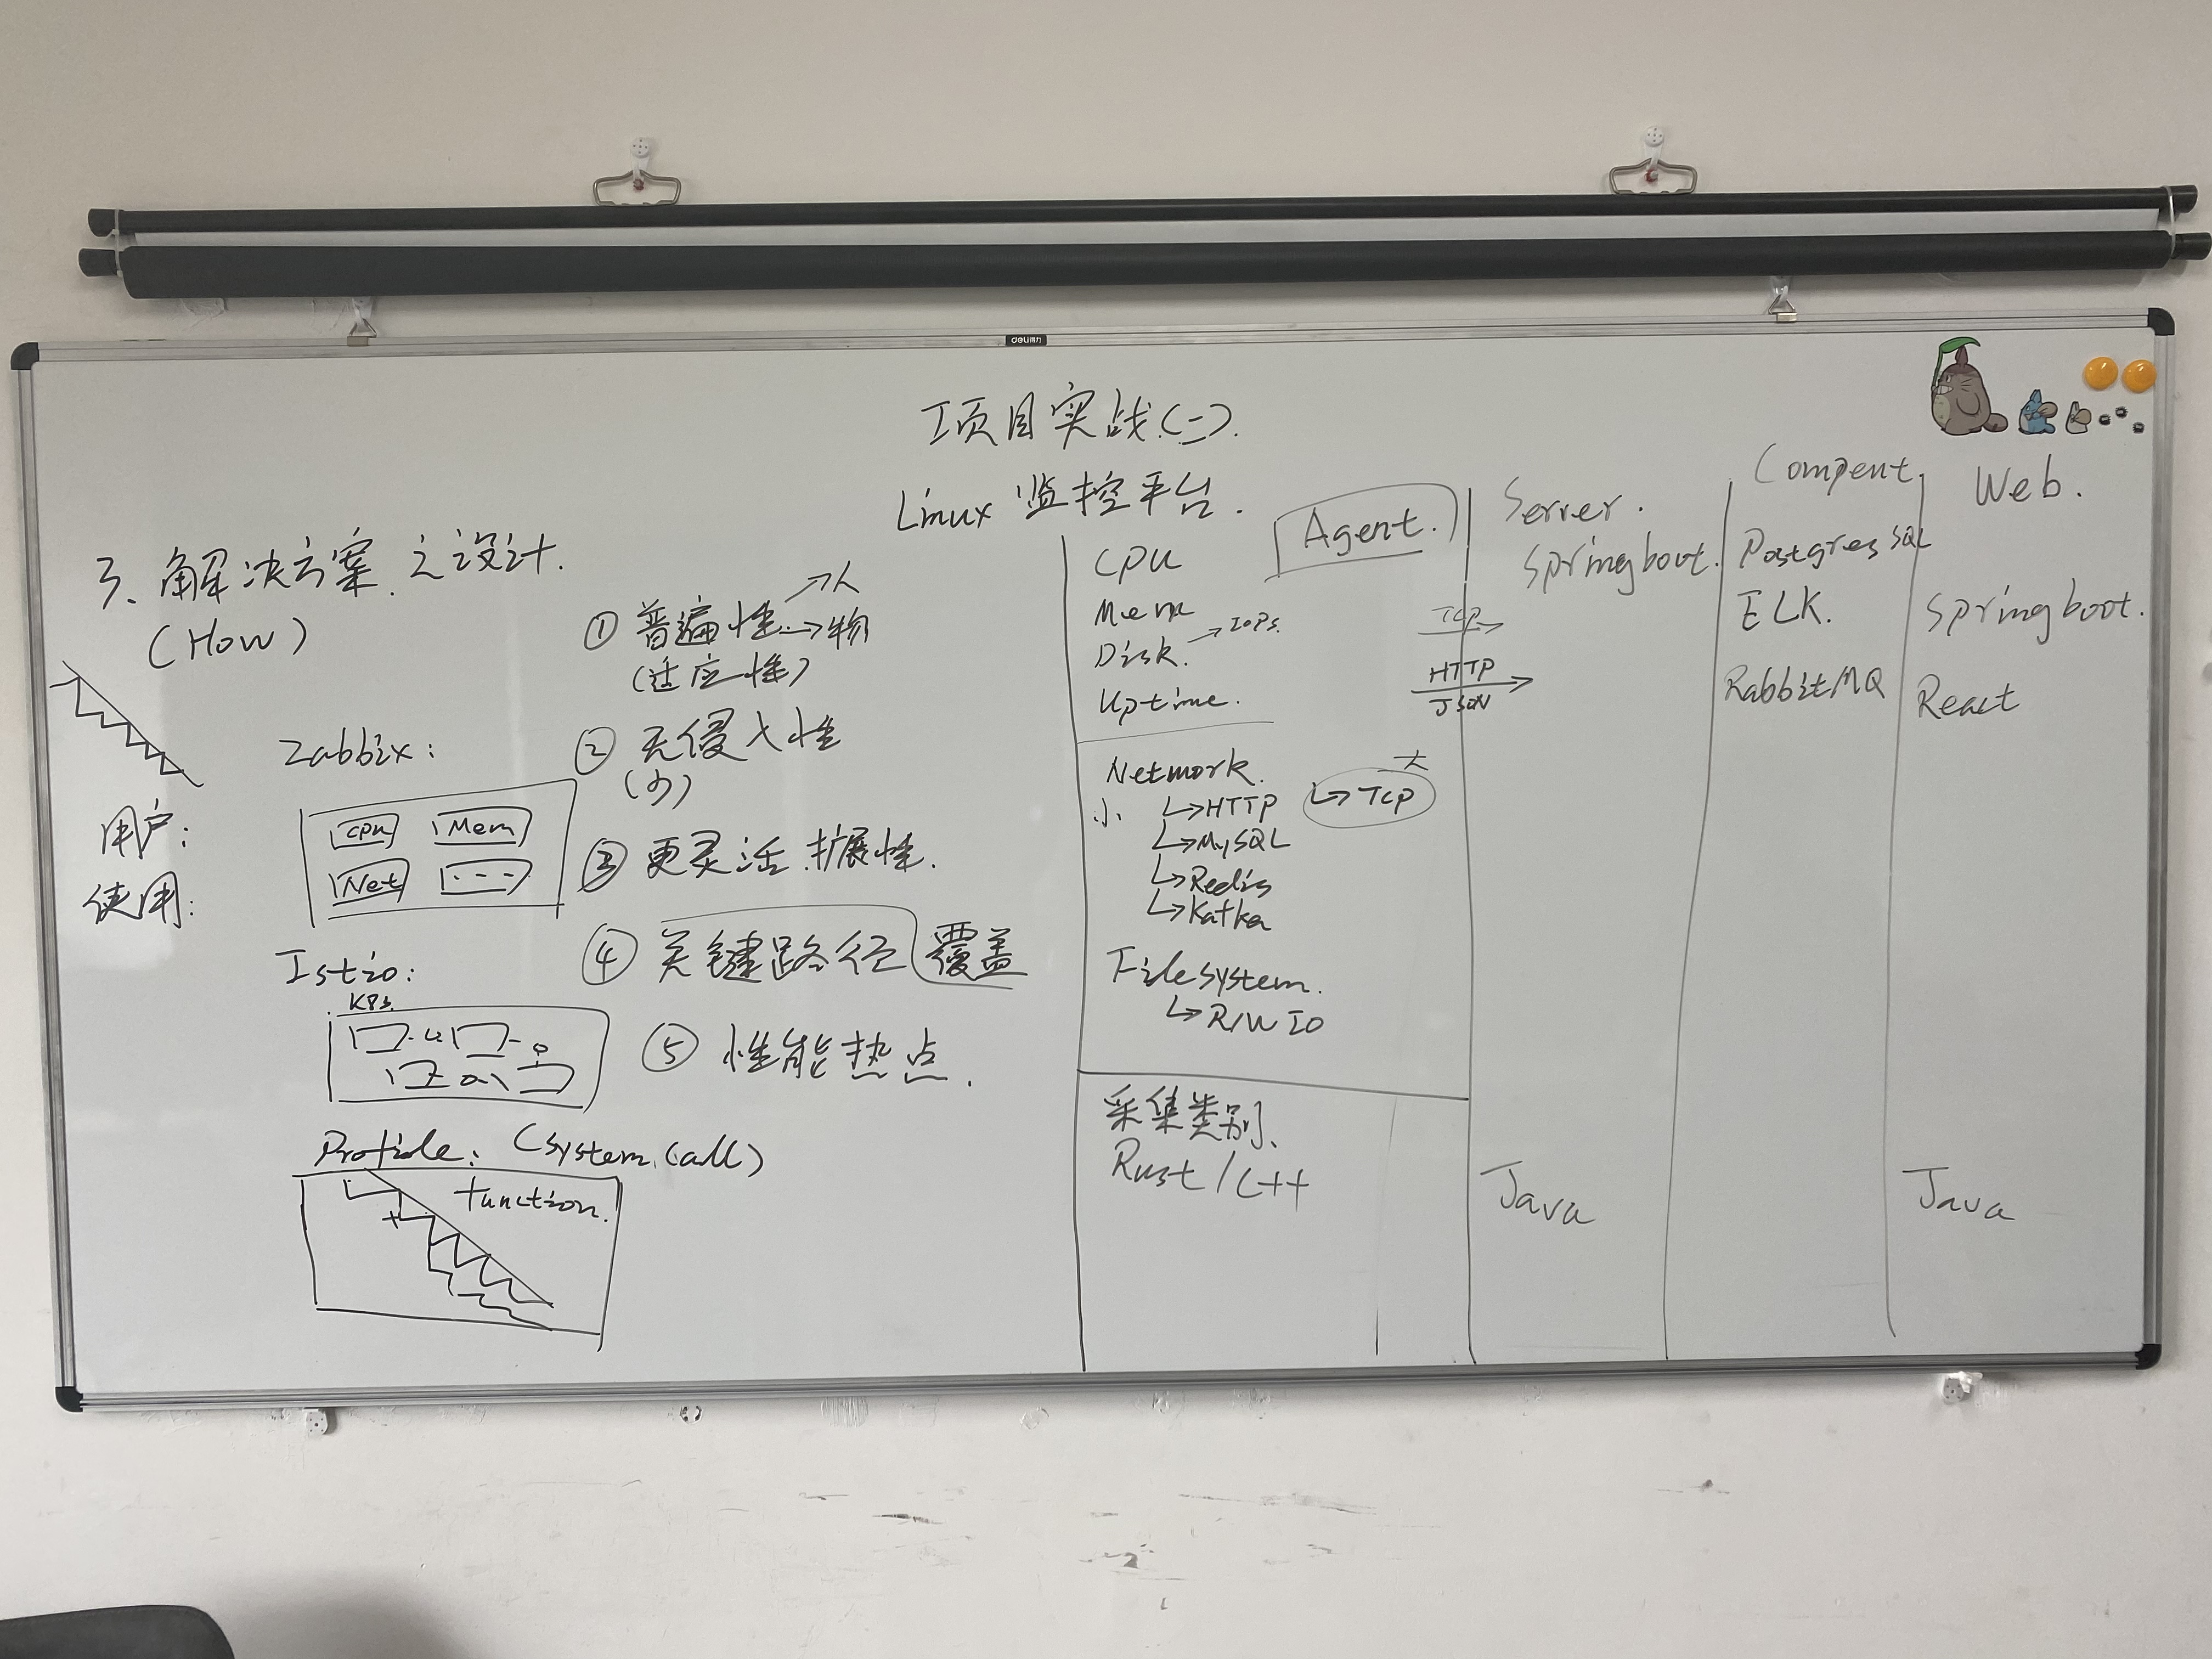 deli得力
工项目实战(二).
Linux 监控平台.
3、解决方案之设计.
(How)
用户:
使用:
Zabbix:
CPU Mem
Net ...
Istio:
KPS
Profile: (System Call)
function.
① 普遍性 →人 →物
(适应性)
② 无侵入性
(少)
③ 更灵活.扩展性.
④ 关键路径 覆盖
⑤ 性能热点.
Agent.
CPU
Mem
Disk. → IOPS.
Uptime.
Network.
小 ↳HTTP ↳TCP 大
↳MySQL
↳Redis
↳Kafka
Filesystem.
↳R/W IO
采集类别、
Rust / C++
TCP
HTTP
JSON
Server.
Springboot.
Java
Compent
PostgresSQL
ELK.
RabbitMQ
Web.
Springboot.
React
Java